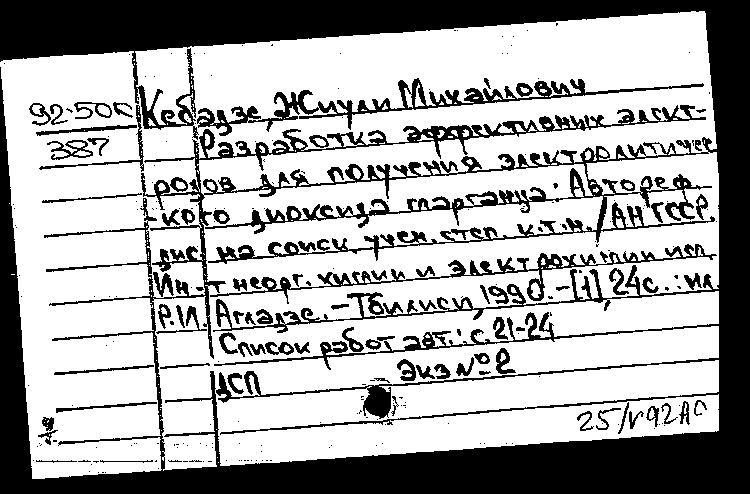 92-50г Кебадзе, Жиули Михайлович
387 Разработка эффективных элект-
родов для получения электролитичес
-кого диоксида марганца: Автореф.
дис. на соиск. учен. степ. к.т.н. / АН ГССР.
Ин-т неорг. химии и электрохимии им.
Р.И. Агладзе. - Тбилиси, 1990. - [1], 24с. : ил.
Список работ авт.: с. 21-24
ДСП Экз № 2
25/V 92